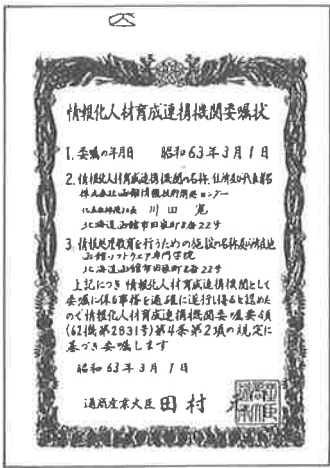 情報化人材育成連携機関委嘱状
1. 委嘱の年月日 昭和63年3月1日
2. 情報化人材育成連携機関の名称、住所及び代表者名
株式会社函館情報技術開発センター
代表取締役社長 川田 寛
北海道函館市田家町8番22号
3. 情報処理教育を行うための施設の名称及び所在地
函館ソフトウェア専門学院
北海道函館市田家町8番22号
上記につき情報化人材育成連携機関として
委嘱に係る事務を適確に遂行し得ると認めた
ので情報化人材育成連携機関委嘱要領
(62機第2831号)第4条第2項の規定に
基づき委嘱します
昭和63年3月1日
通商産業大臣 田村